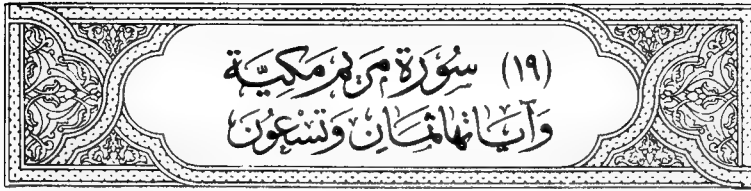 (١٩) سُورَة مَرْيَم مَكِيَّة
وَآيَاتها ثمَانِ وَتِسْعُونَ